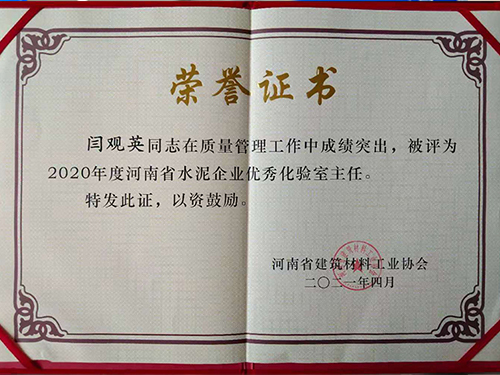 荣誉证书
闫观英同志在质量管理工作中成绩突出，被评为
2020年度河南省水泥企业优秀化验室主任。
特发此证，以资鼓励。
河南省建筑材料工业协会
二〇二一年四月